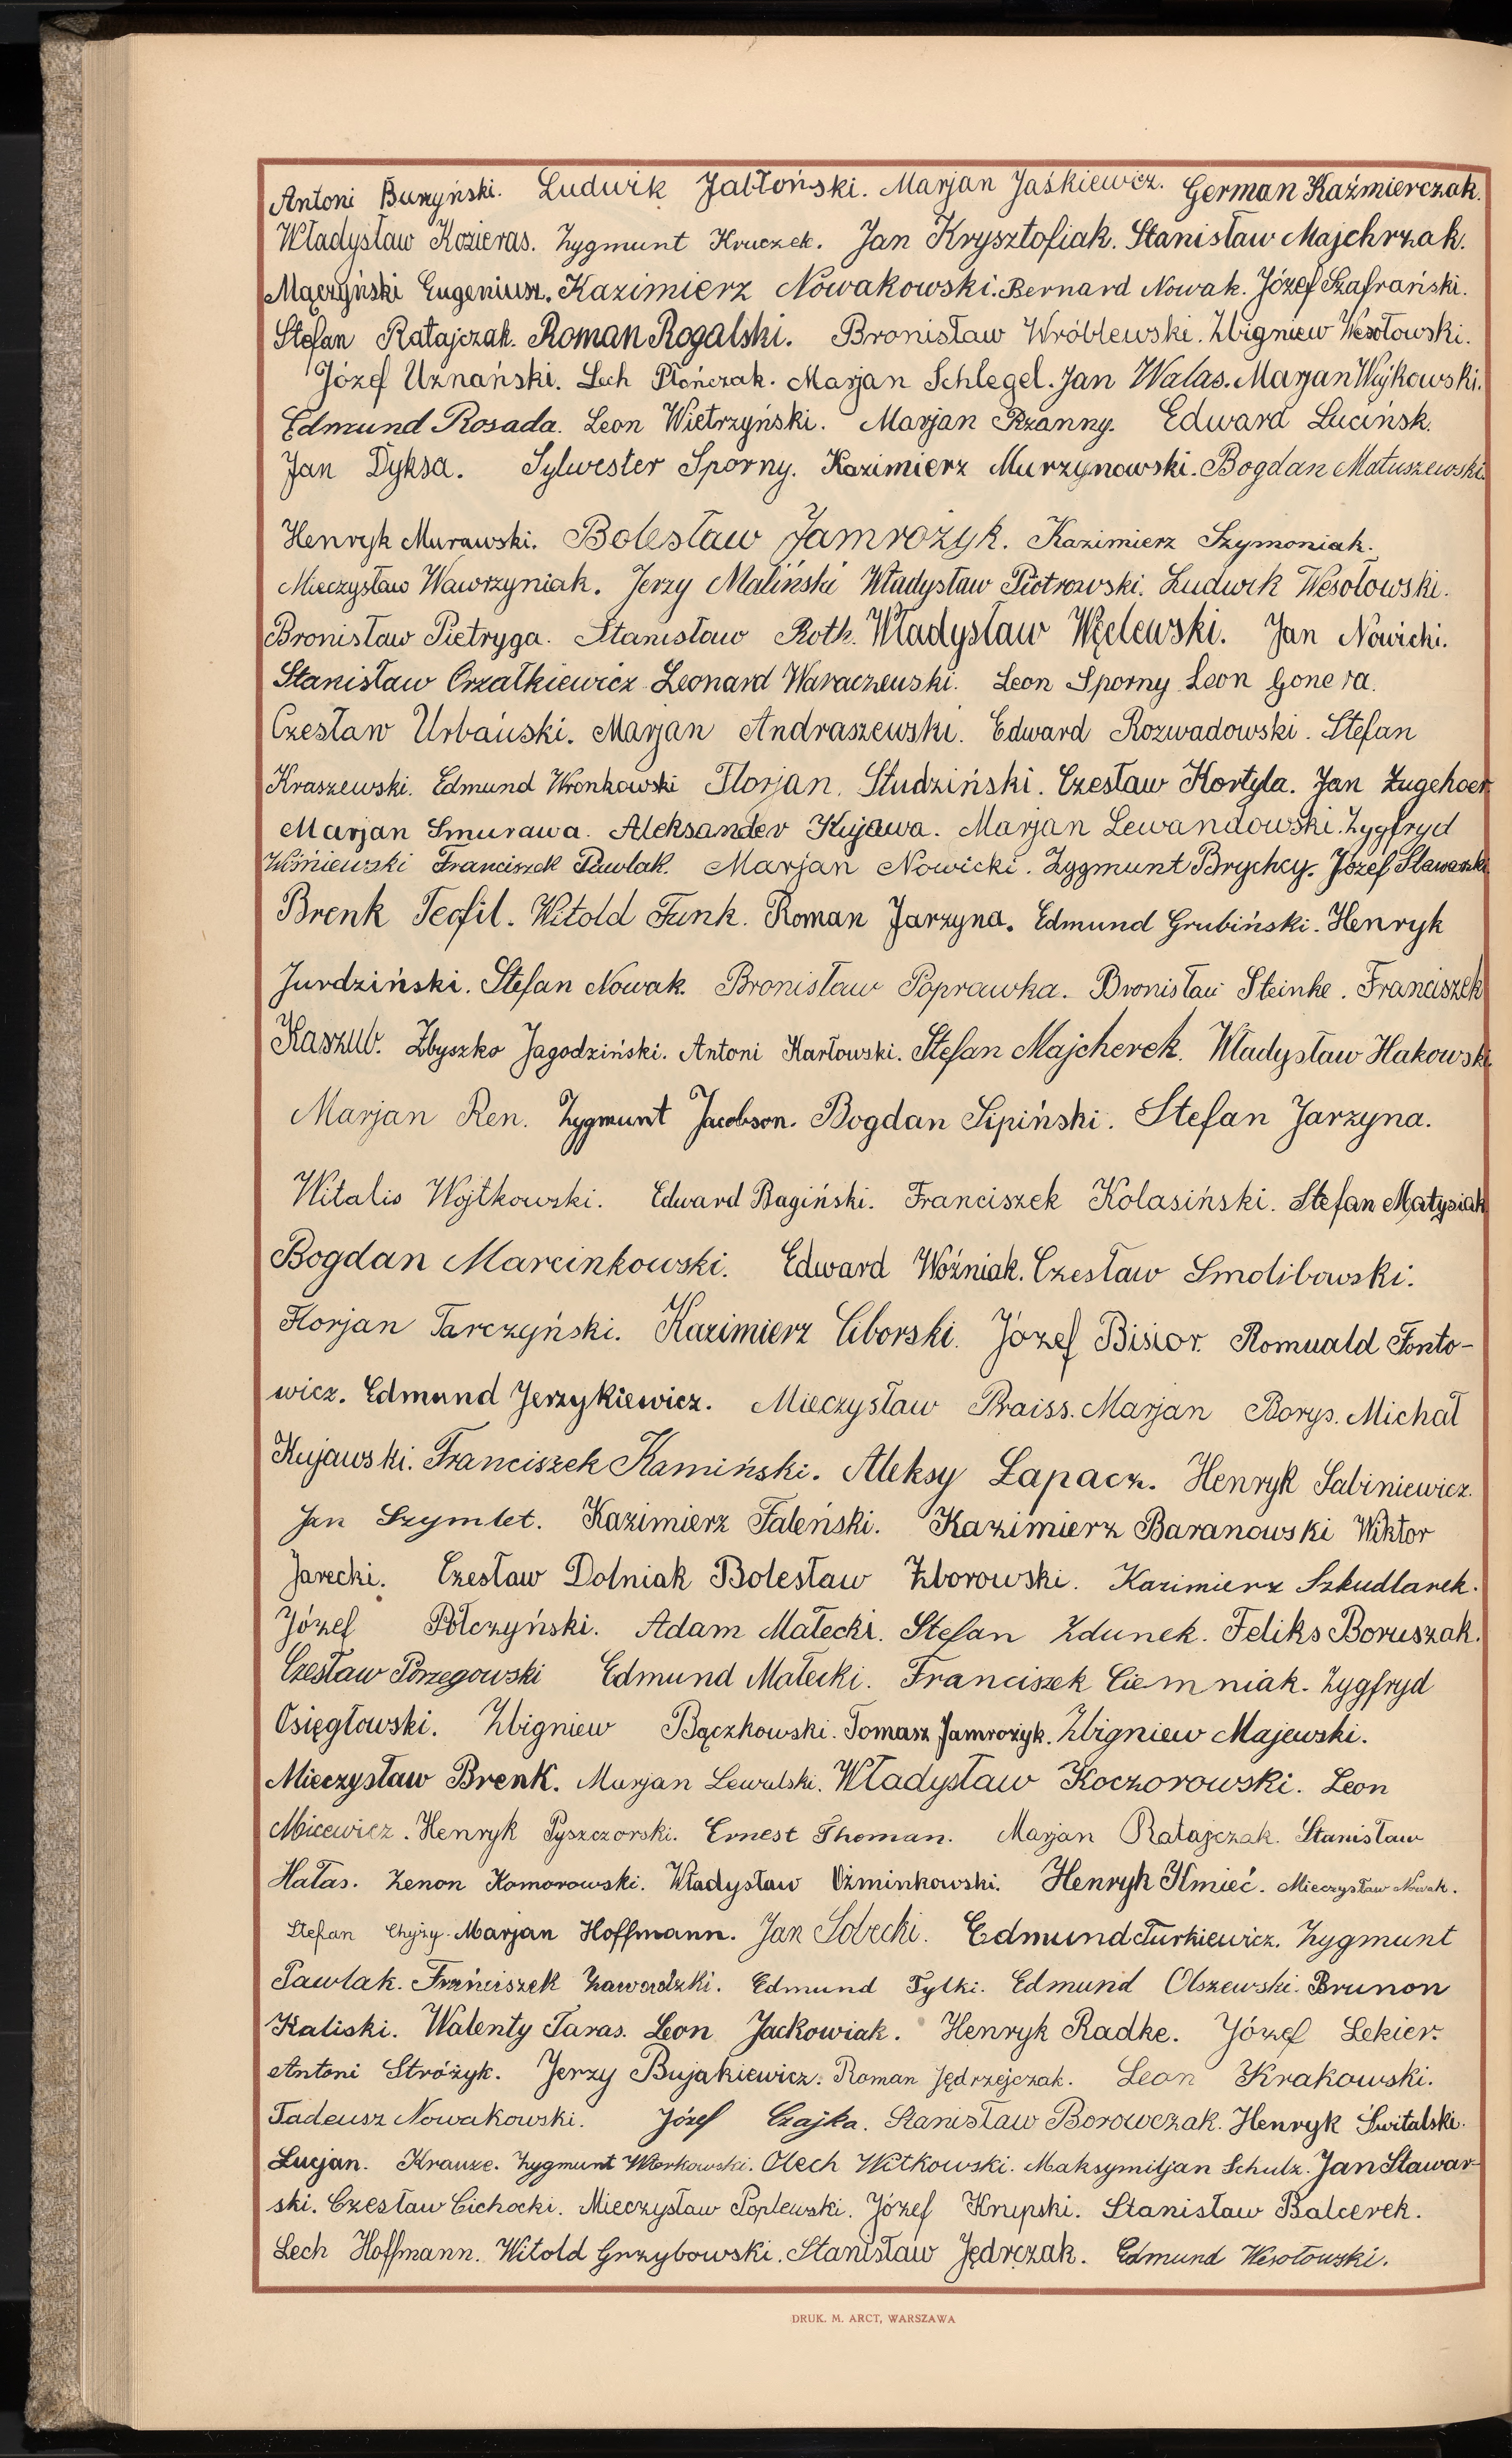 Antoni Burzyński. Ludwik Jabłoński. Marjan Jaśkiewicz. German Kaźmierczak.
Władysław Kozieras. Zygmunt Kruczek. Jan Krysztofiak. Stanisław Majchrzak.
Mączyński Eugeniusz. Kazimierz Nowakowski. Bernard Nowak. Józef Szafrański.
Stefan Ratajczak. Roman Rogalski. Bronisław Wróblewski. Zbigniew Wesołowski.
Józef Uznański. Lech Płończak. Marjan Schlegel. Jan Walas. Marjan Wójkowski.
Edmund Rosada. Leon Wietrzyński. Marjan Rzanny. Edward Lucińsk.
Jan Dyksa. Sylwester Sporny. Kazimierz Murzynowski. Bogdan Matuszewski.
Henryk Murawski. Bolesław Jamrożyk. Kazimierz Szymoniak.
Mieczysław Wawrzyniak. Jerzy Maliński Władysław Piotrowski. Ludwik Wesołowski.
Bronisław Pietryga. Stanisław Roth. Władysław Węclewski. Jan Nowicki.
Stanisław Orzałkiewicz Leonard Waraczewski. Leon Sporny Leon Gonera.
Czesław Urbański. Marjan Andraszewski. Edward Rozwadowski. Stefan
Kraszewski. Edmund Wronkowski Florjan. Studziński. Czesław Kortyla. Jan Zugehoer
Marjan Smurawa. Aleksander Kujawa. Marjan Lewandowski. Zygfryd
Wiśniewski Franciszek Pawlak. Marjan Nowicki. Zygmunt Brychcy. Józef Sławski
Brenk Teofil. Witold Funk. Roman Jarzyna. Edmund Grubiński. Henryk
Jurdziński. Stefan Nowak. Bronisław Poprawka. Bronisław Steinke. Franciszek
Kaszub. Zbyszko Jagodziński. Antoni Karłowski. Stefan Majcherek. Władysław Hakowski
Marjan Ren. Zygmunt Jacobson. Bogdan Sipiński. Stefan Jarzyna.
Witalis Wojtkowski. Edward Bagiński. Franciszek Kolasiński. Stefan Matysiak
Bogdan Marcinkowski. Edward Woźniak. Czesław Smolibowski.
Florjan Tarczyński. Kazimierz Ciborski. Józef Bisior. Romuald Fonto-
wicz. Edmund Jerzykiewicz. Mieczysław Praiss. Marjan Borys. Michał
Kujawski. Franciszek Kamiński. Aleksy Łapacz. Henryk Sabiniewicz.
Jan Szymlet. Kazimierz Faleński. Kazimierz Baranowski Wiktor
Jarecki. Czesław Dolniak Bolesław Zborowski. Kazimierz Szkudlarek.
Józef Połczyński. Adam Małecki. Stefan Zdunek. Feliks Boruszak.
Czesław Porzegowski Edmund Małecki. Franciszek Ciemniak. Zygfryd
Osięgłowski. Zbigniew Bączkowski. Tomasz Jamrożyk. Zbigniew Majewski.
Mieczysław Brenk. Marjan Lewalski. Władysław Koczorowski. Leon
Micewicz. Henryk Pyszczorski. Ernest Thoman. Marjan Ratajczak. Stanisław
Hałas. Zenon Komorowski. Władysław Oźminkowski. Henryk Kmieć. Mieczysław Nowak.
Stefan Chyży. Marjan Hoffmann. Jan Sobecki. Edmund Turkiewicz. Zygmunt
Pawlak. Franciszek Zawodzki. Edmund Tylki. Edmund Olszewski. Brunon
Kaliski. Walenty Taras. Leon Jackowiak. Henryk Radke. Józef Lekier.
Antoni Stróżyk. Jerzy Bujakiewicz. Roman Jędrzejczak. Leon Krakowski.
Tadeusz Nowakowski. Józef Czajka. Stanisław Borowczak. Henryk Świtalski.
Lucjan. Krauze. Zygmunt Wierkowski. Olech Witkowski. Maksymiljan Schulz. Jan Sławar-
ski. Czesław Cichocki. Mieczysław Poplewski. Józef Krupski. Stanisław Balcerek.
Lech Hoffmann. Witold Grzybowski. Stanisław Jędrczak. Edmund Wesołowski.
DRUK. M. ARCT, WARSZAWA